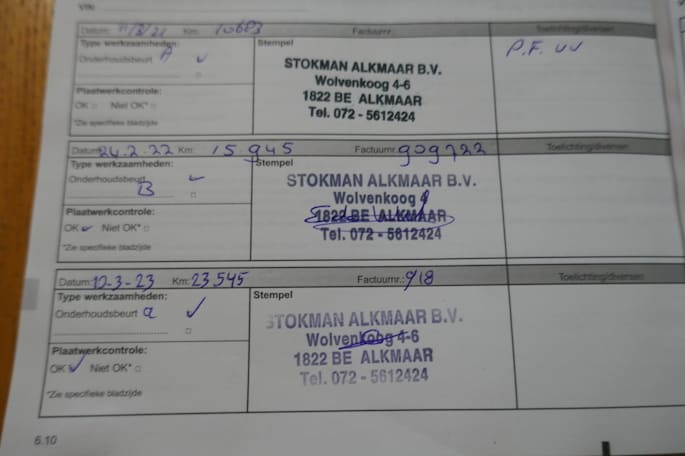 VIN:
Datum: 11/3/21 Km: 10683 Factuurnr.: Toelichting/diversen
Type werkzaamheden: Stempel
Onderhoudsbeurt A
P.F. vv
STOKMAN ALKMAAR B.V.
Wolvenkoog 4-6
1822 BE ALKMAAR
Tel. 072 - 5612424
Plaatwerkcontrole:
OK Niet OK*
*Zie specifieke bladzijde
Datum: 24.2.22 Km: 15.945 Factuurnr.: 909722 Toelichting/diversen
Type werkzaamheden: Stempel
Onderhoudsbeurt B
STOKMAN ALKMAAR B.V.
Wolvenkoog
1822 BE ALKMAAR
Tel. 072 - 5612424
Plaatwerkcontrole:
OK Niet OK*
*Zie specifieke bladzijde
Datum: 10-3-23 Km: 23.545 Factuurnr.: 918 Toelichting/diversen
Type werkzaamheden: Stempel
Onderhoudsbeurt a
STOKMAN ALKMAAR B.V.
Wolvenkoog 4-6
1822 BE ALKMAAR
Tel. 072 - 5612424
Plaatwerkcontrole:
OK Niet OK*
*Zie specifieke bladzijde
6.10